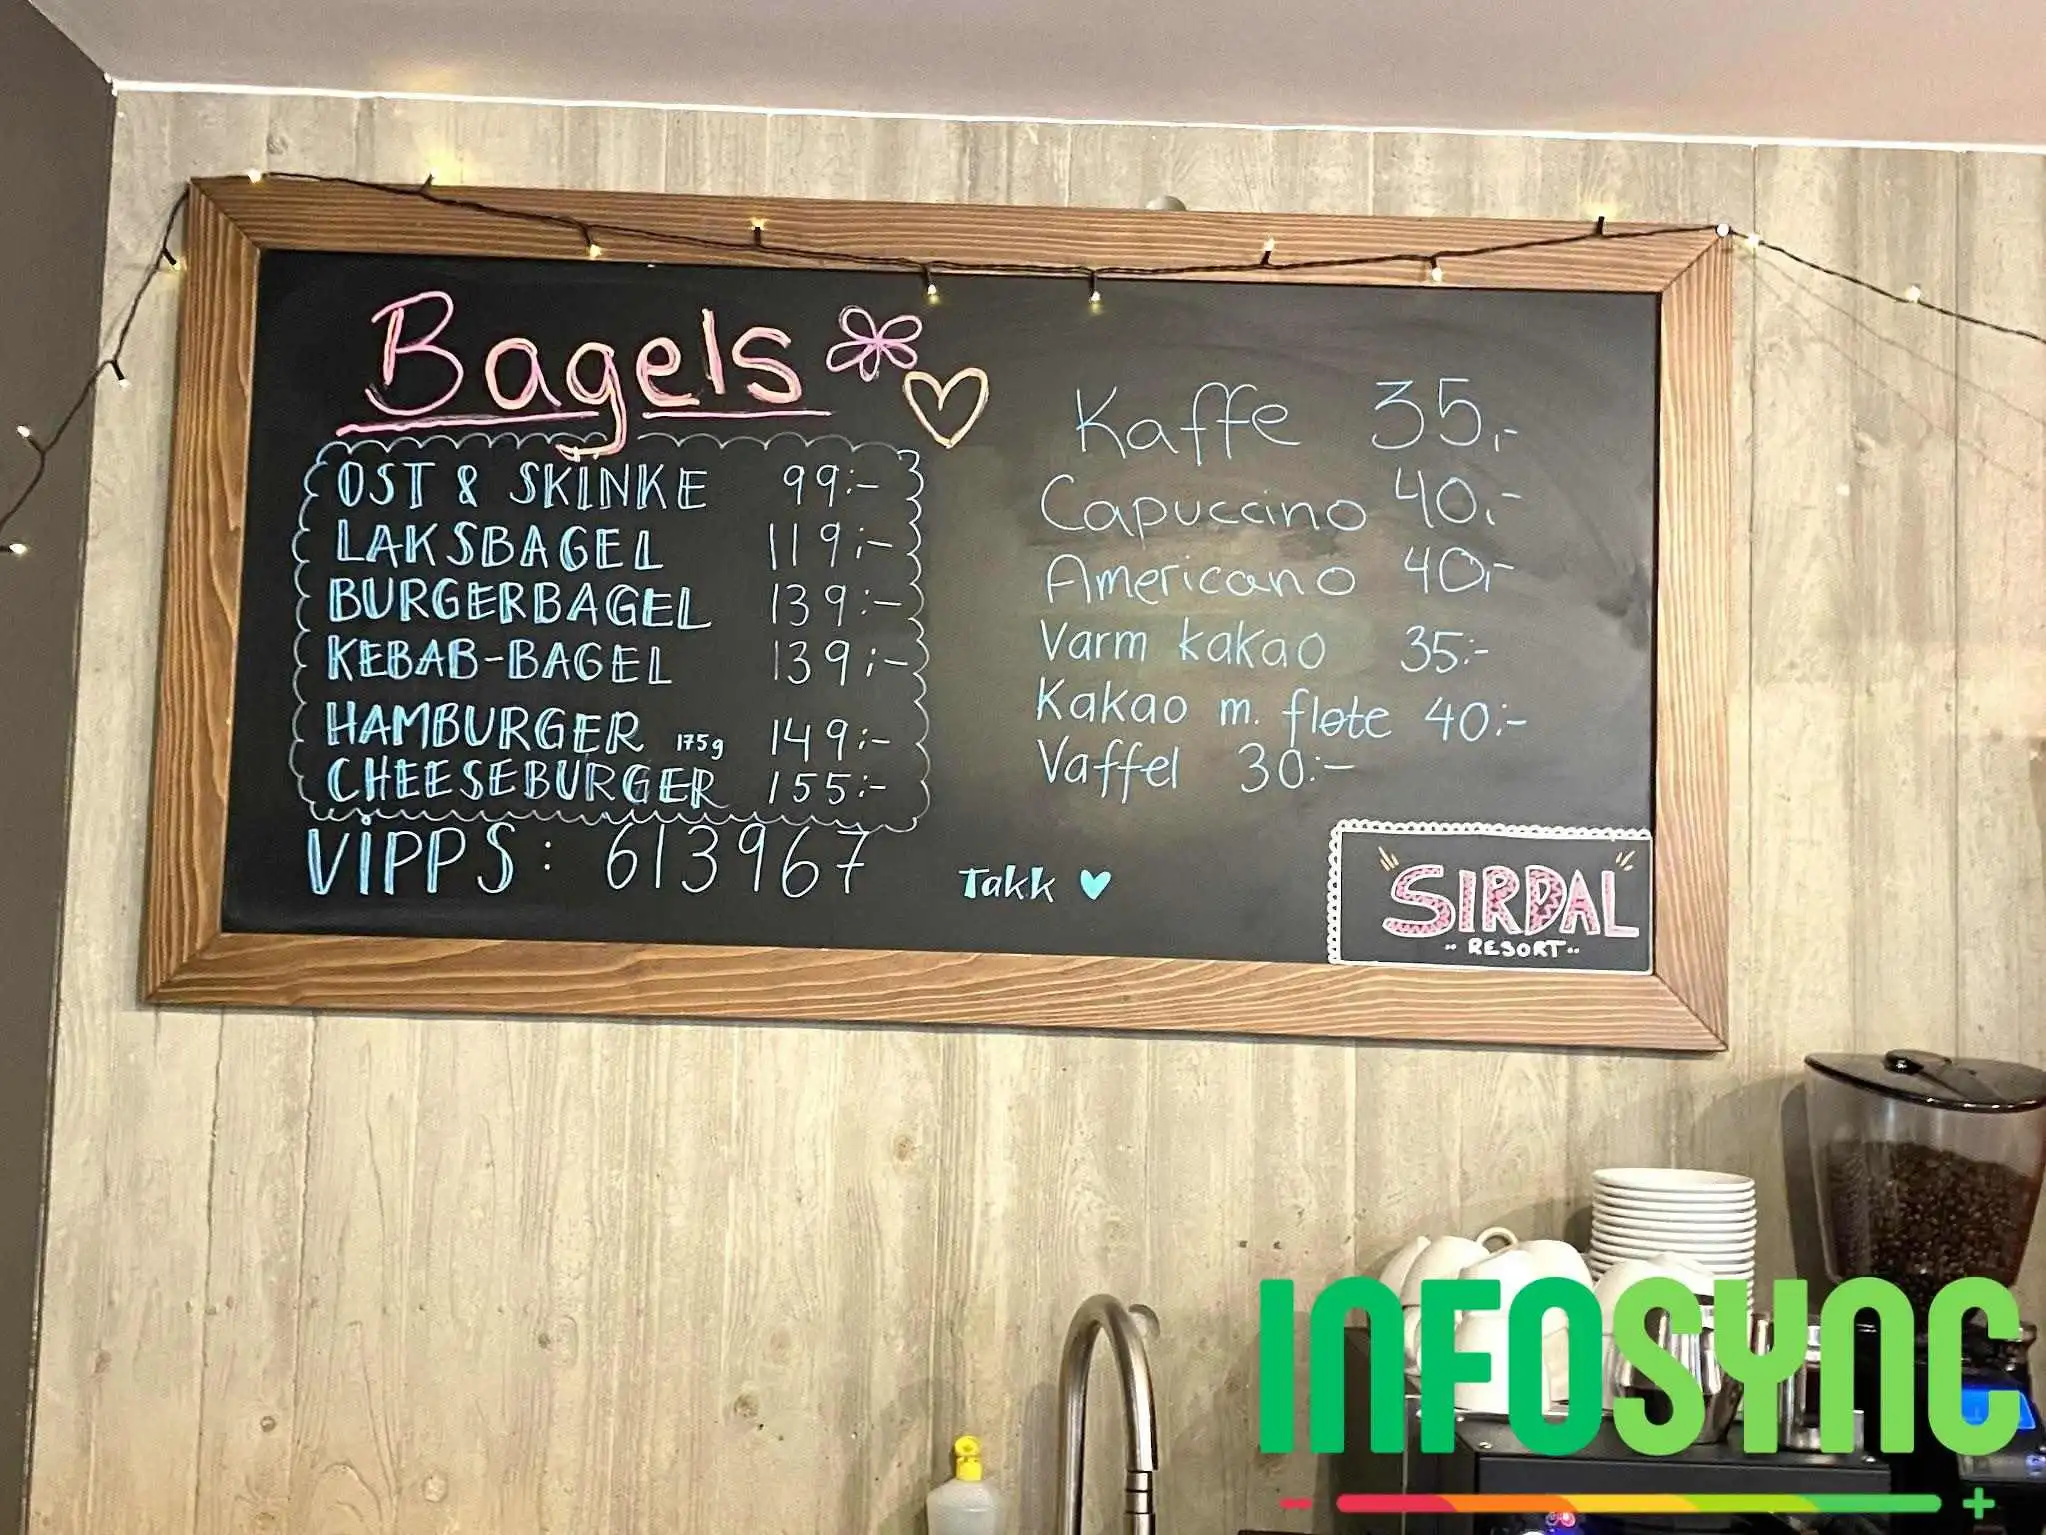 Bagels
OST & SKINKE 99:-
LAKSBAGEL 119:-
BURGERBAGEL 139:-
KEBAB-BAGEL 139:-
HAMBURGER 175g 149:-
CHEESEBURGER 155:-
VIPPS: 613967
Takk
Kaffe 35,-
Capuccino 40,-
Americano 40,-
Varm kakao 35:-
Kakao m. fløte 40:-
Vaffel 30:-
SIRDAL
RESORT
INFOSYNC